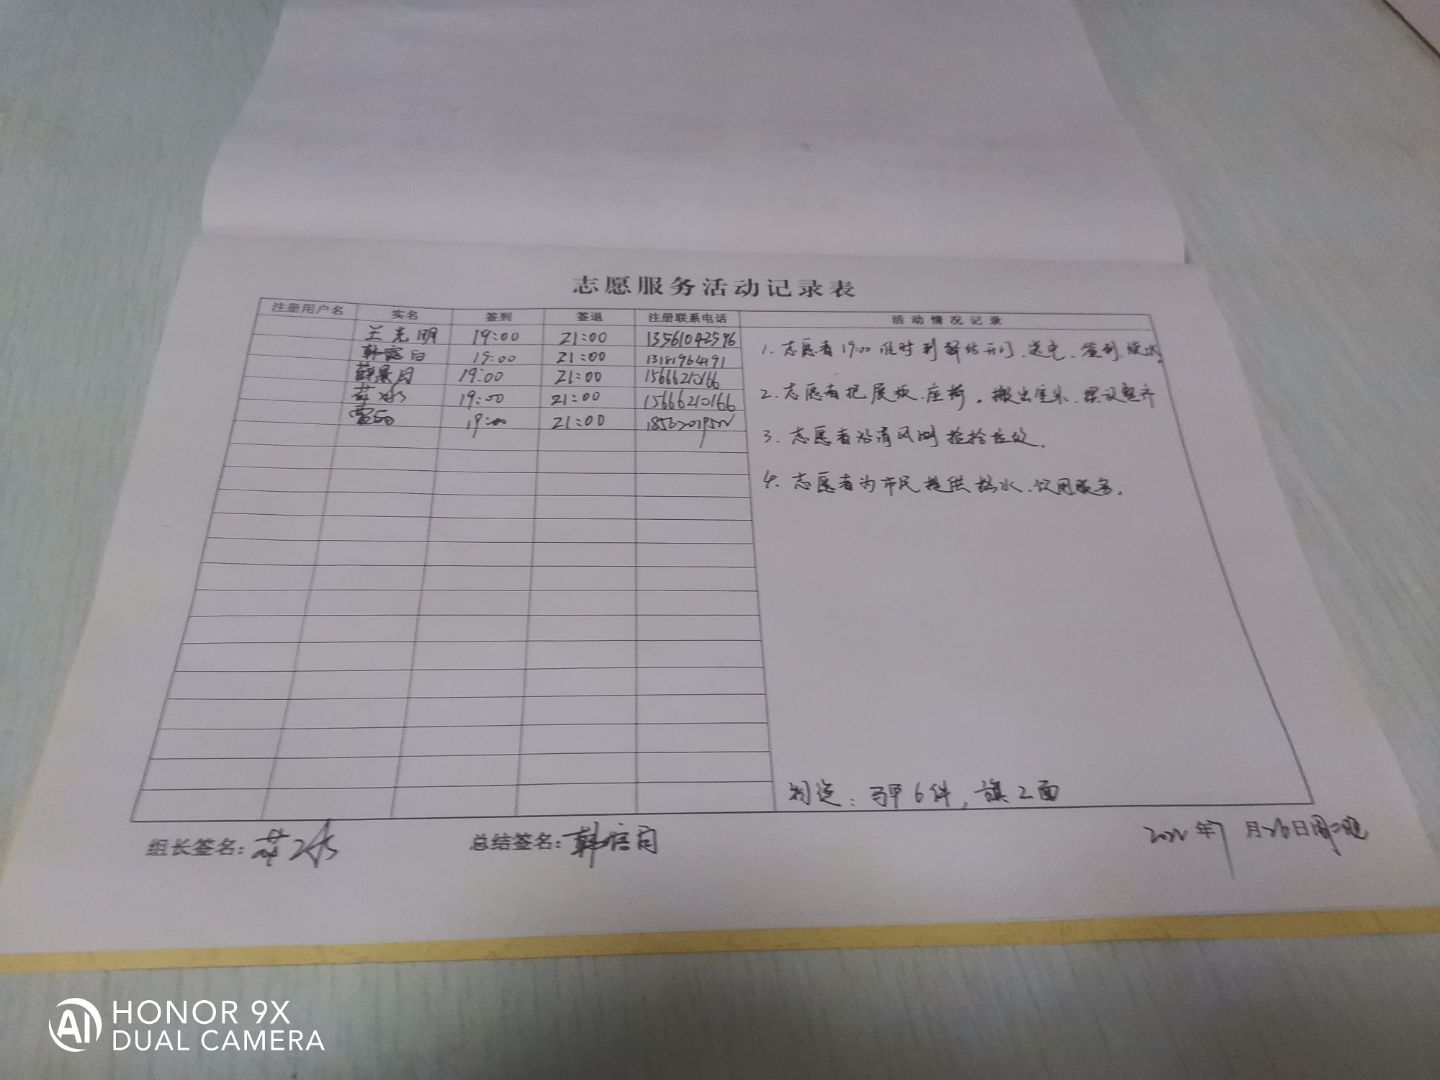 志愿服务活动记录表
注册用户名 实名 签到 签退 注册联系电话 活动情况记录
兰光明 19:00 21:00 13561042596
19:00 21:00 13181964191
薛景月 19:00 21:00 15666210166
19:00 21:00 15666210166
19:00 21:00
1. 志愿者19:00准时到 开门、送电、签到
2. 志愿者把展板、座椅,搬出室外,摆放整齐
3. 志愿者沿清风湖捡拾垃圾。
4. 志愿者为市民提供热水、饮用服务。
马甲6件,旗2面
组长签名:
总结签名:韩
年7月26日周二晚
HONOR 9X
DUAL CAMERA